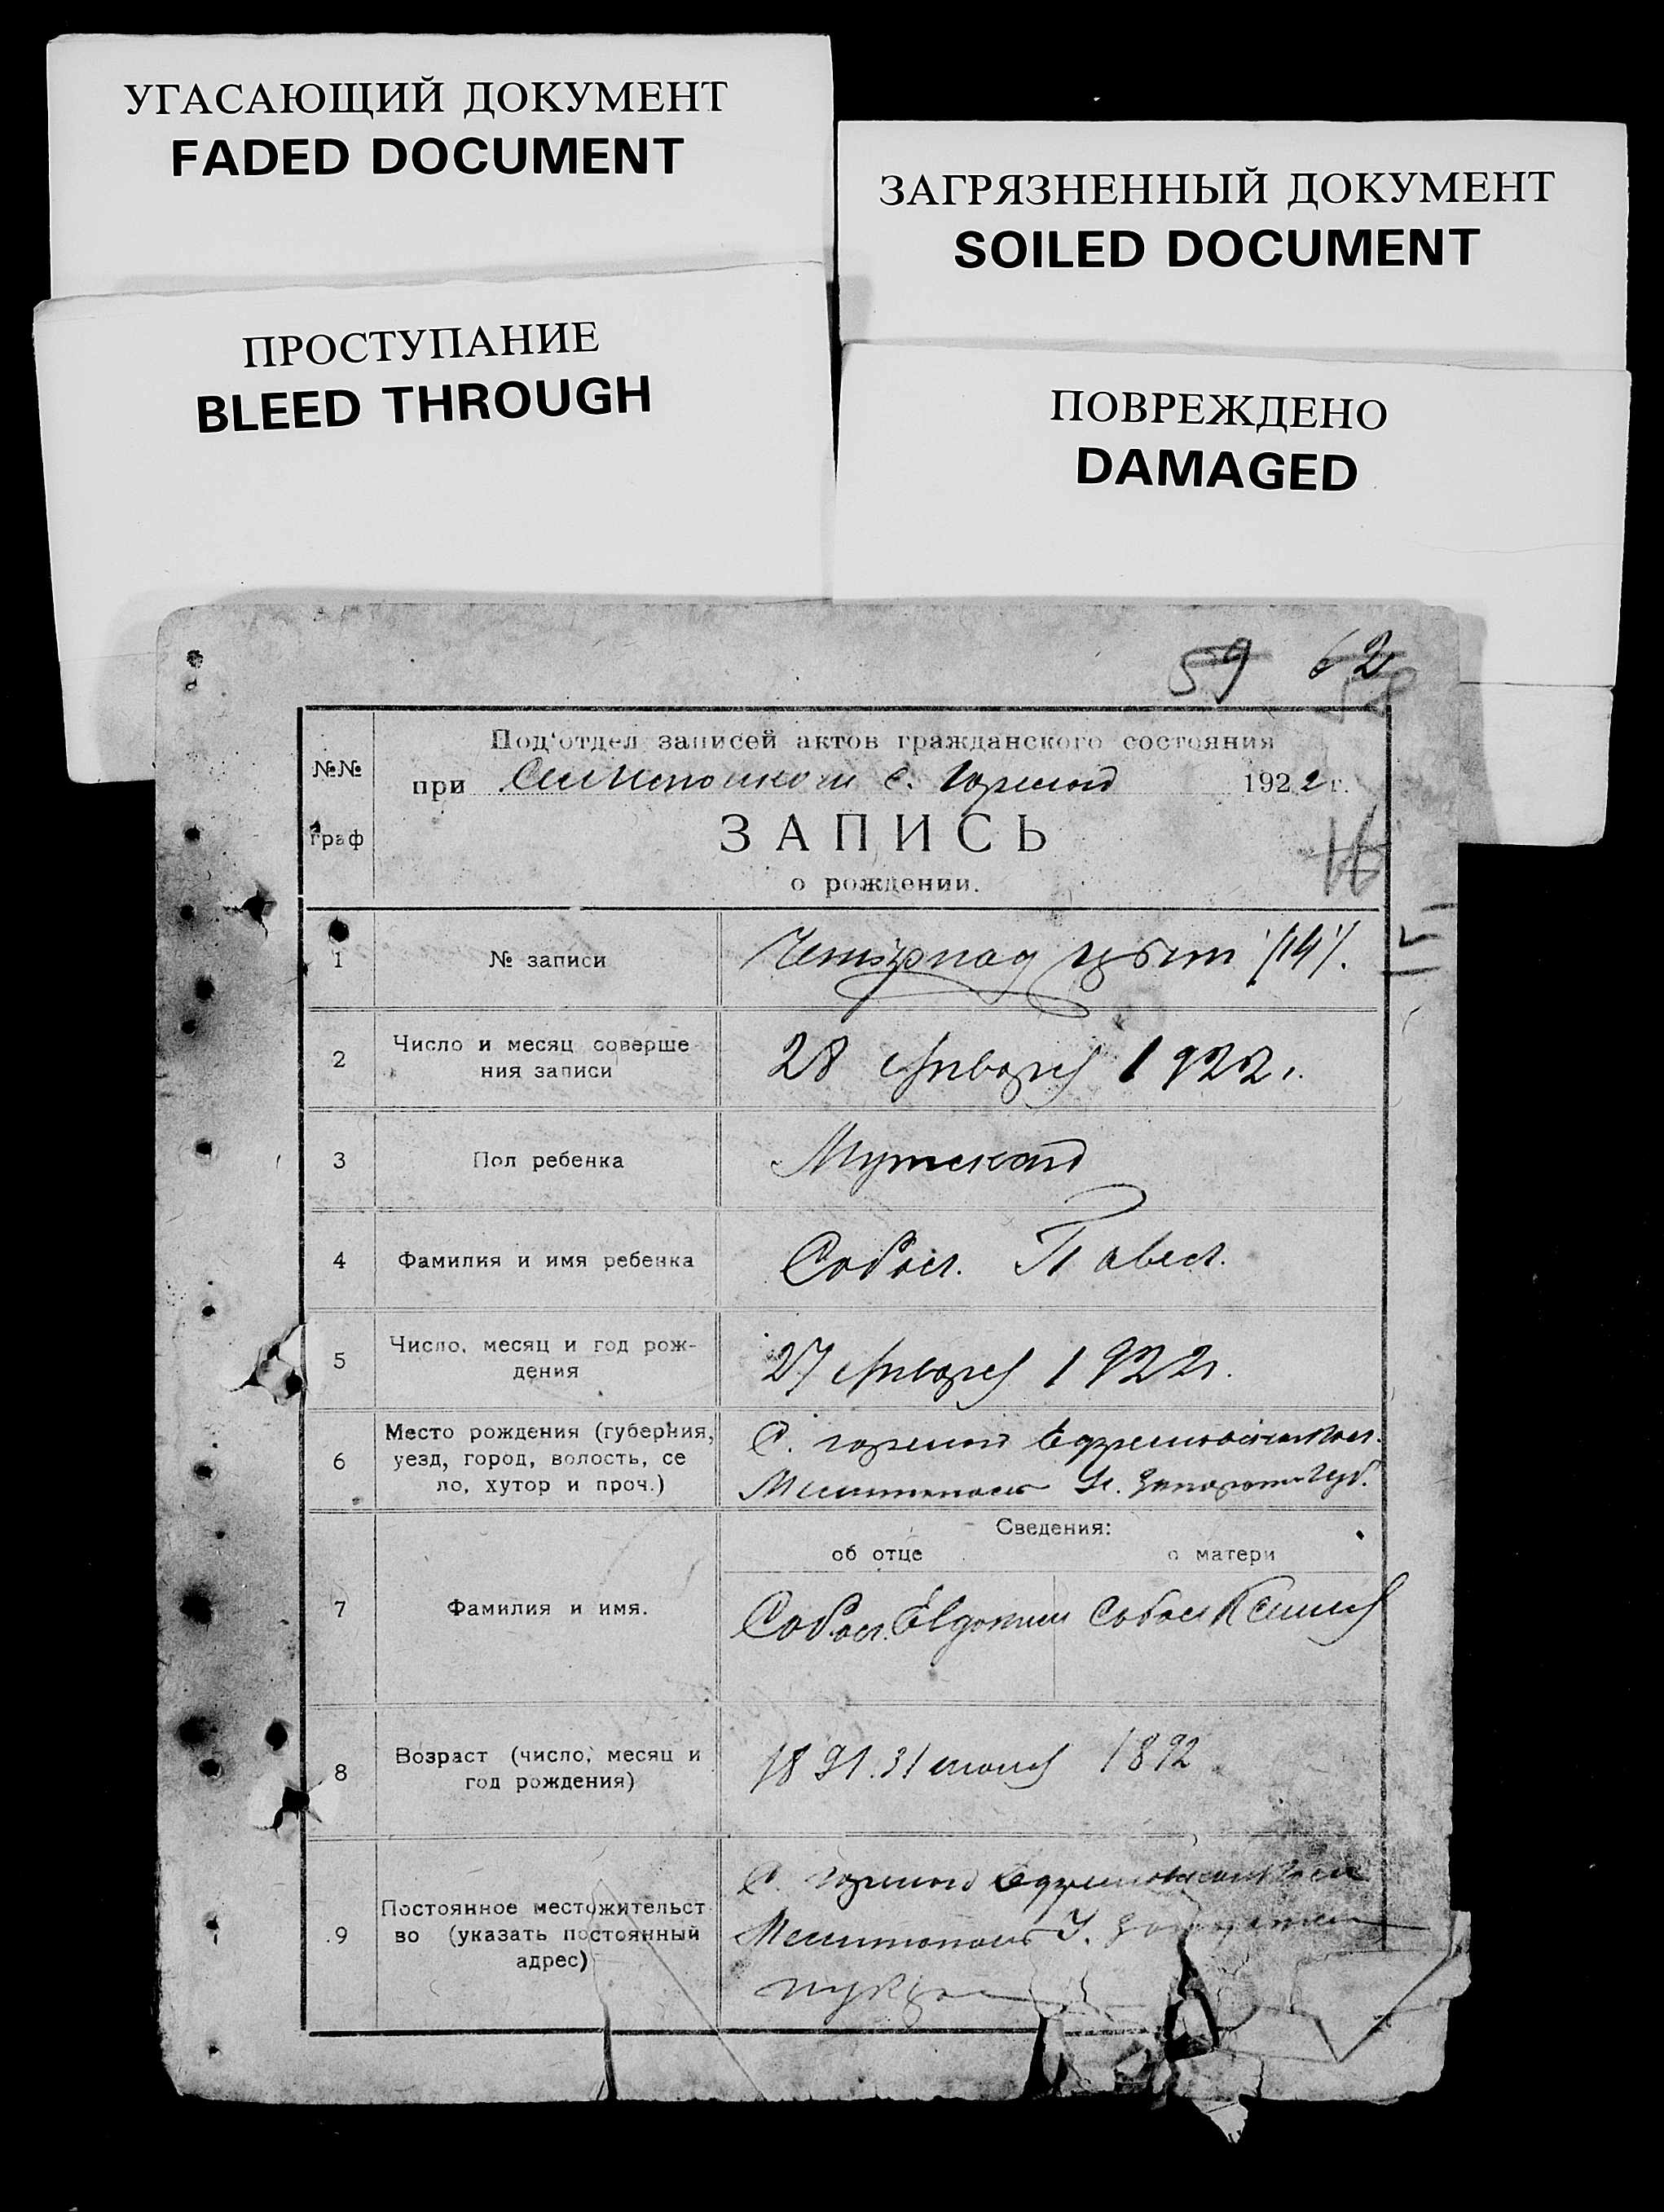 УГАСАЮЩИЙ ДОКУМЕНТ
FADED DOCUMENT
ЗАГРЯЗНЕННЫЙ ДОКУМЕНТ
SOILED DOCUMENT
ПРОСТУПАНИЕ
BLEED THROUGH
ПОВРЕЖДЕНО
DAMAGED
59 62
58
№№ граф
Под'отдел записей актов гражданского состояния
при с. Горелой 1922 г.
ЗАПИСЬ
16
о рождении.
1 № записи
Четырнадцять /14/.
2 Число и месяц соверше-
ния записи
28 января 1922.
3 Пол ребенка
Мужской
4 Фамилия и имя ребенка
Собол. Павел.
5 Число, месяц и год рож-
дения
27 января 1922.
6 Место рождения (губерния,
уезд, город, волость, се
ло, хутор и проч.)
С. Горелой
Мелитопольс У. Запорож Губ.
Сведения:
об отце о матери
7 Фамилия и имя.
Собол. Евдоким Собол Ксения
8 Возраст (число, месяц и
год рождения)
1891. 31 1892
9 Постоянное местожительст
во (указать постоянный
адрес)
С. Горелой
Мелитопольс У.